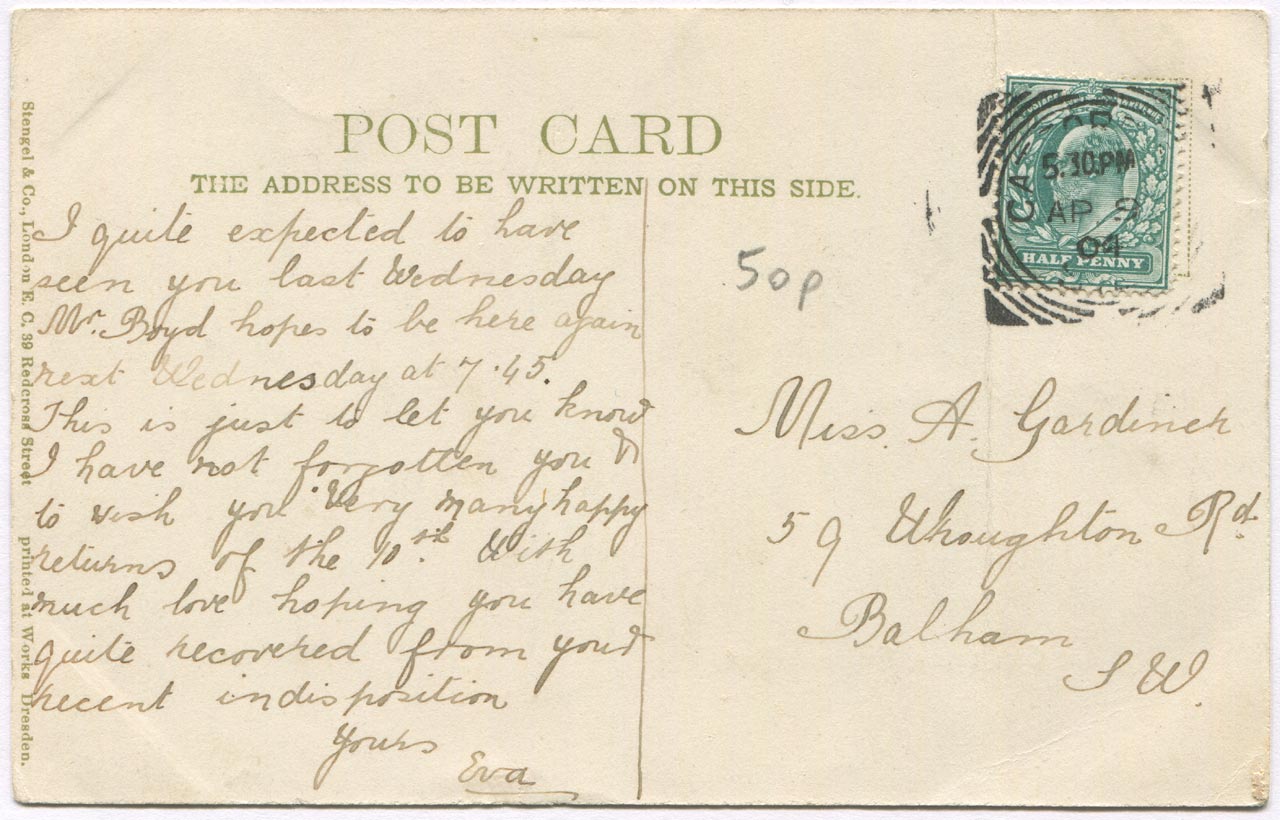 POST CARD
THE ADDRESS TO BE WRITTEN ON THIS SIDE.
Stengel & Co., London E. C. 39 Redcross Street printed at Works Dresden.
I quite expected to have
seen you last Wednesday
Mr. Boyd hopes to be here again
next Wednesday at 7.45.
This is just to let you know
I have not forgotten you &
to wish you very many happy
returns of the 10th. With
much love hoping you have
quite recovered from your
recent indisposition
Yours
Eva
50p
5.30.PM
AP 9
04
HALF PENNY
Miss. A. Gardiner
59 Wroughton Rd.
Balham
S W.